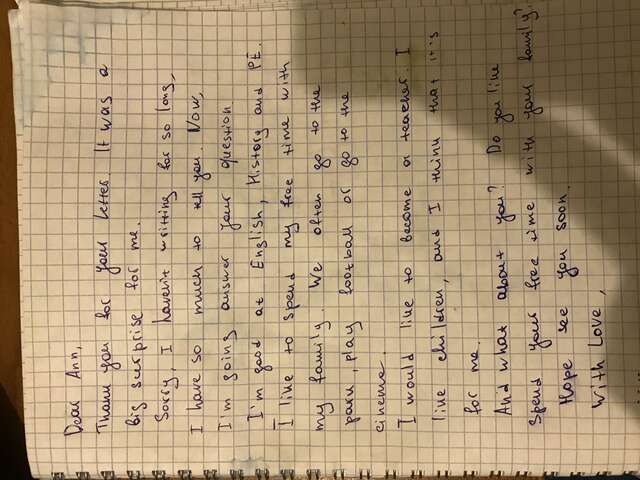 Dear Ann,
Thank you for your letter. It was a
big surprise for me.
Sorry, I haven't writting for so long,
I have so much to tell you. Now,
I'm going answer your question
I'm good at English, History and PE.
I like to spend my free time with
my family. We often go to the
park, play football or go to the
cinema.
I would like to become a teacher. I
like children, and I think that it's
for me.
And what about you? Do you like
spend your free time with your family?
Hope see you soon.
With love,